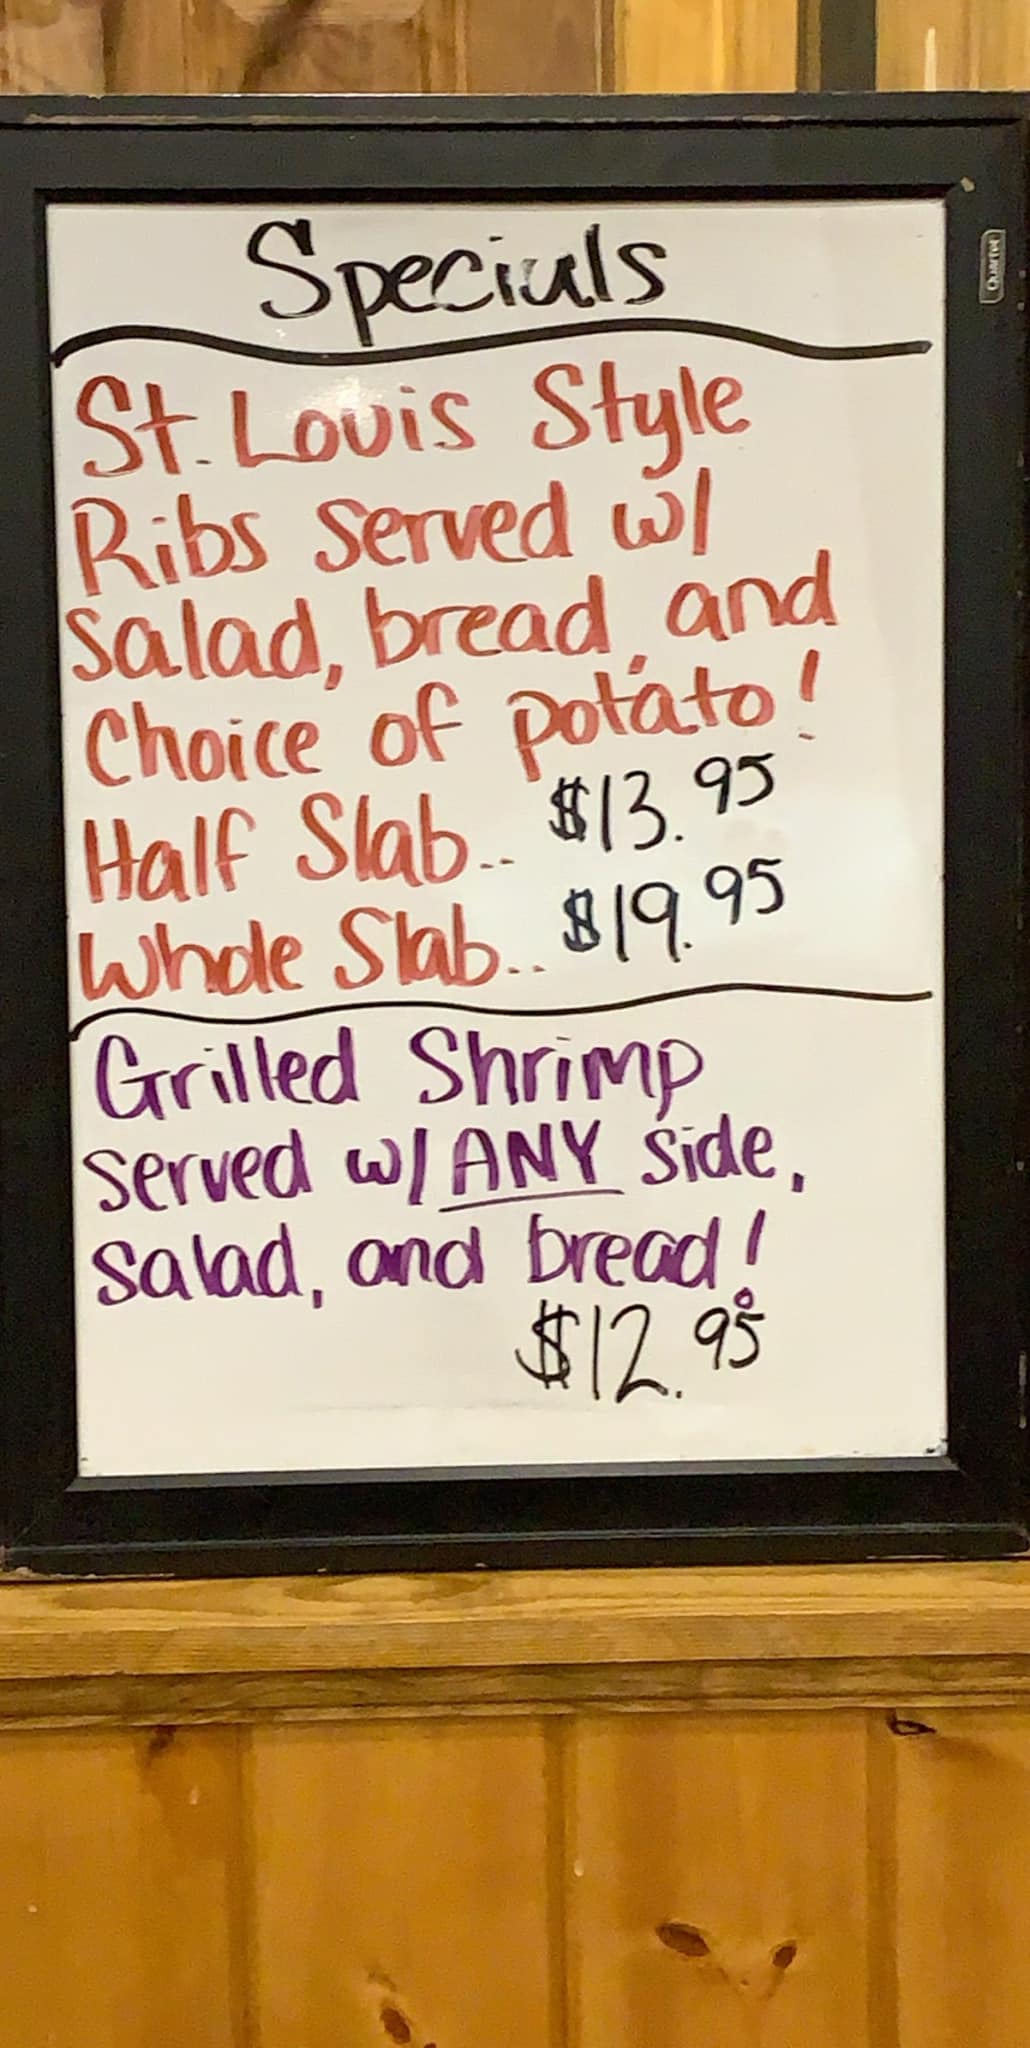 Specials
Quartet
St. Louis Style
Ribs served w/
salad, bread, and
Choice of potato!
Half Slab... $13.95
Whole Slab... $19.95
Grilled Shrimp
served w/ ANY side,
salad, and bread!
$12.95